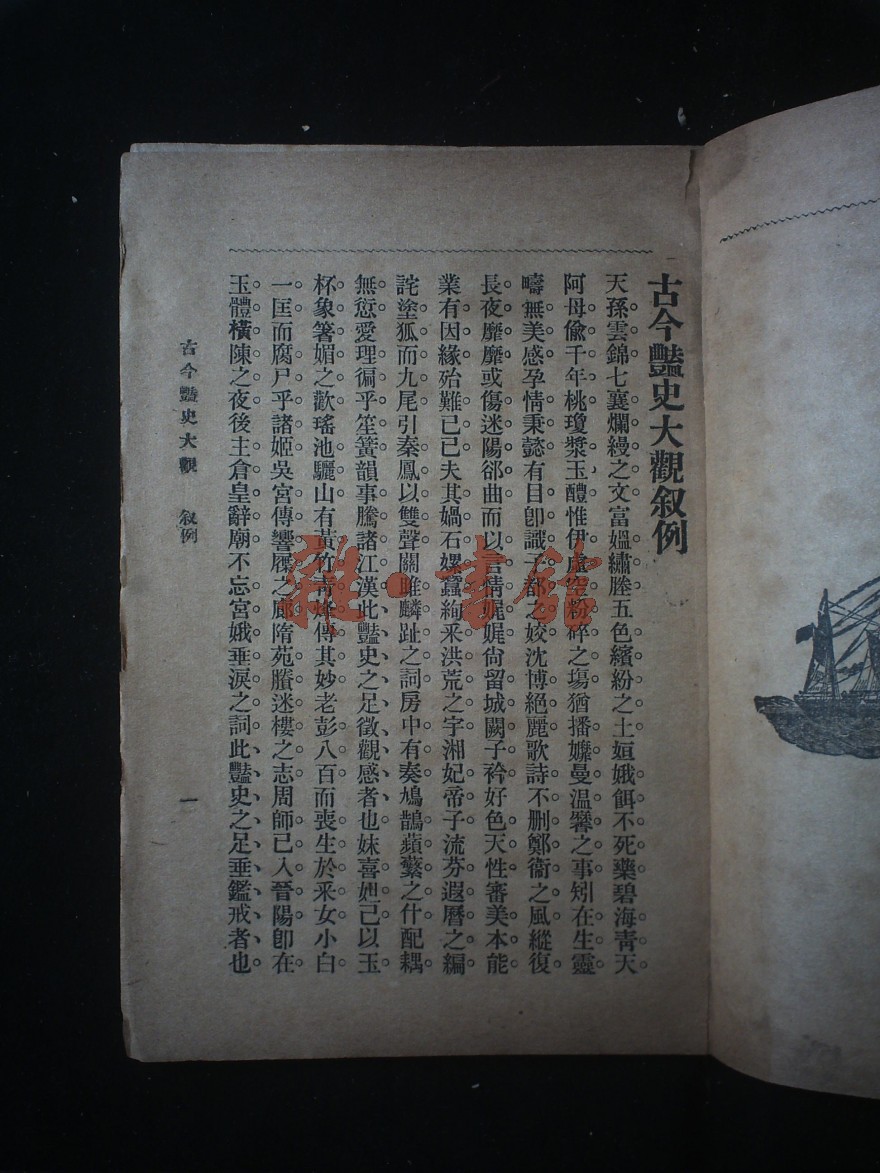 古今豔史大觀叙例
天孫雲錦七襄爛縵之文富媼繡塍五色繽紛之土姮娥餌不死藥碧海靑天
阿母偸千年桃瓊漿玉醴惟伊虛空粉碎之塲猶播嬍曼温馨之事矧在生靈
疇無美感孕情秉懿有目卽識子都之姣沈博絕麗歌詩不删鄭衞之風縱復
長夜靡靡或傷迷陽郤曲而以言情娓娓尙留城闕子衿好色天性審美本能
業有因緣殆難已已夫其媧石嫘蠶絢釆洪荒之宇湘妃帝子流芬遐曆之編
詫塗狐而九尾引秦鳳以雙聲關雎麟趾之詞房中有奏鳩鵲蘋蘩之什配耦
無愆愛理徧乎笙簧韻事騰諸江漢此豔史之足徵觀感者也妹喜妲己以玉
杯象箸媚之歡瑤池驪山有黃竹靑烽傳其妙老彭八百而喪生於釆女小白
一匡而腐尸乎諸姬吳宮傳響屧之廊隋苑賸迷樓之志周師已入晉陽卽在
玉體橫陳之夜後主倉皇辭廟不忘宮娥垂淚之詞此豔史之足垂鑑戒者也
古今豔史大觀　叙例
一
雜·書館